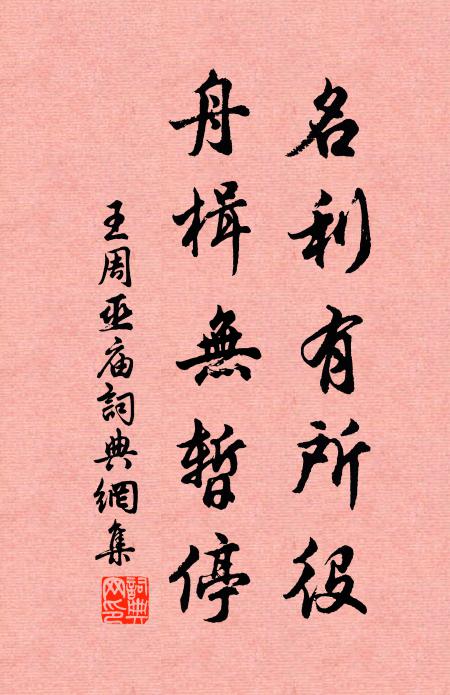 名利有所役
舟楫無暫停
王周巫庙詞典網集
詞典網印